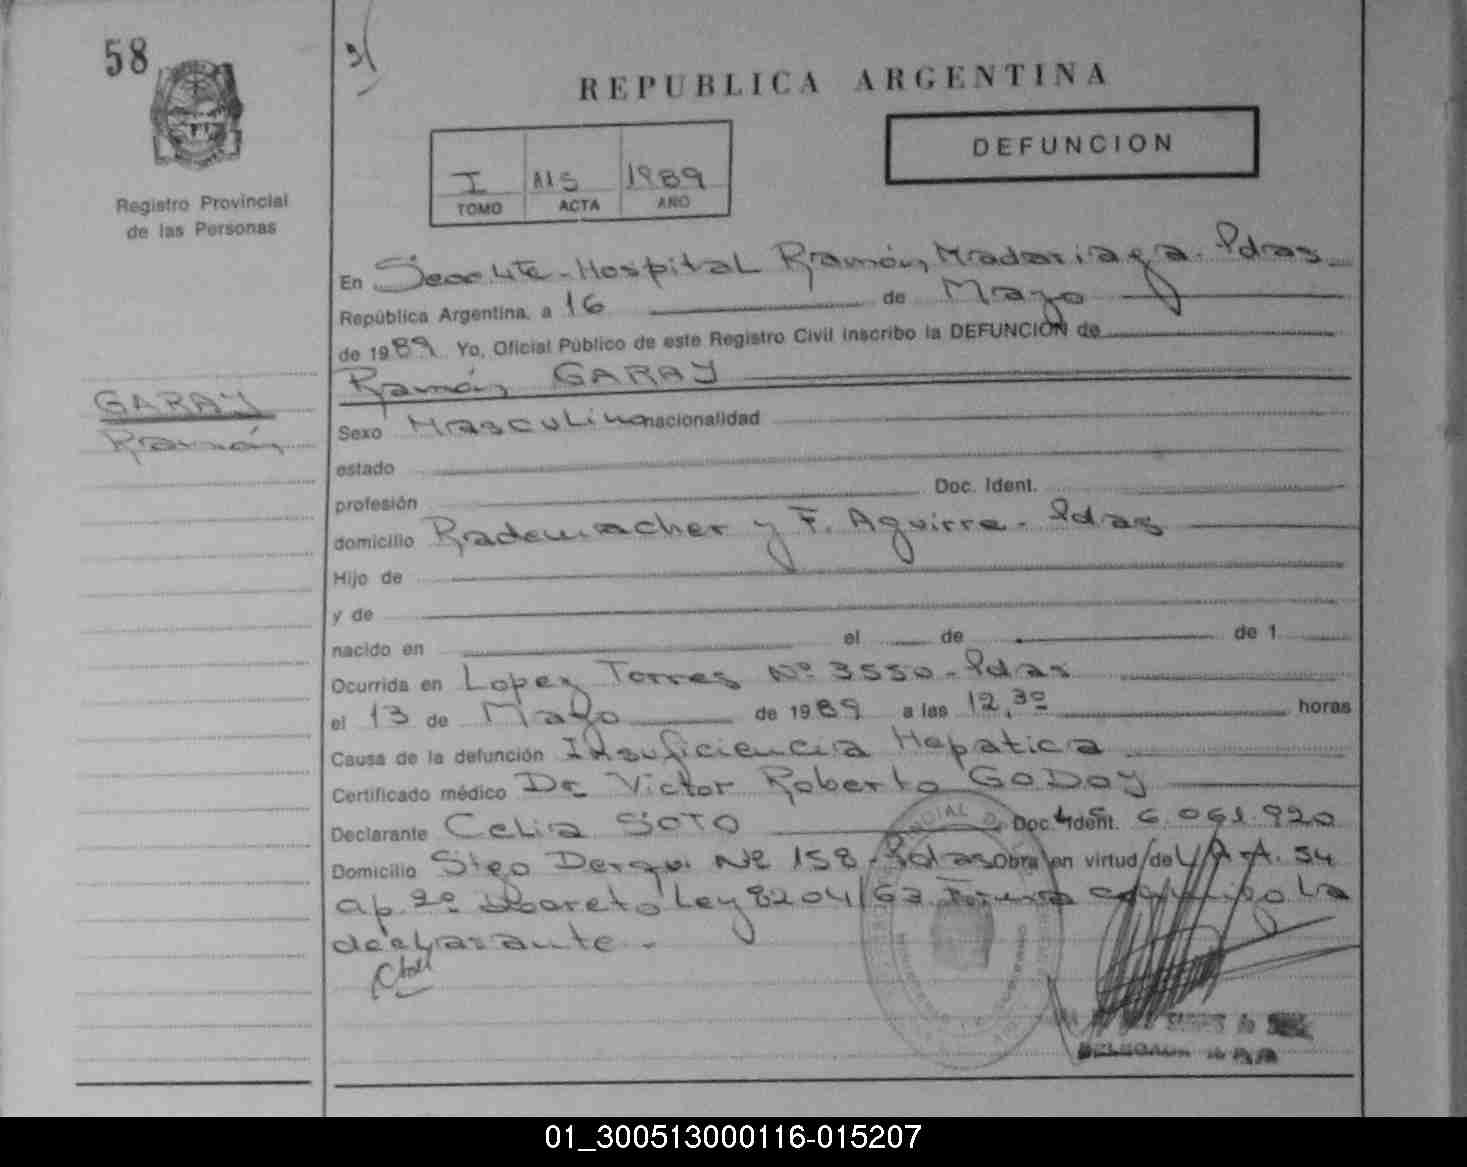 58
REPUBLICA ARGENTINA
DEFUNCION
I 115 1989
TOMO ACTA AÑO
Registro Provincial
de las Personas
GARAY
Ramón
En Secc 4ta - Hospital Ramón Madariaga. Pdas.
República Argentina, a 16 de Mayo
de 1989 Yo, Oficial Público de este Registro Civil inscribo la DEFUNCION de
Ramón GARAY
Sexo Masculino nacionalidad
estado
profesión Doc. Ident.
domicilio Rademacher y F. Aguirre. Pdas
Hijo de
y de
nacido en el de de 1
Ocurrida en Lopez Torres Nº 3550 - Pdas
el 13 de Mayo de 1989 a las 12,30 horas
Causa de la defunción Insuficiencia Hepatica
Certificado médico Dr. Victor Roberto GODOY
Declarante Celia SOTO Doc. Ident. 6.061.920
Domicilio Stgo Derqui Nº 158 - Pdas Obra en virtud de A. 54
ap. 2º Decreto Ley 8204/63 Firma conmigo la
declarante.